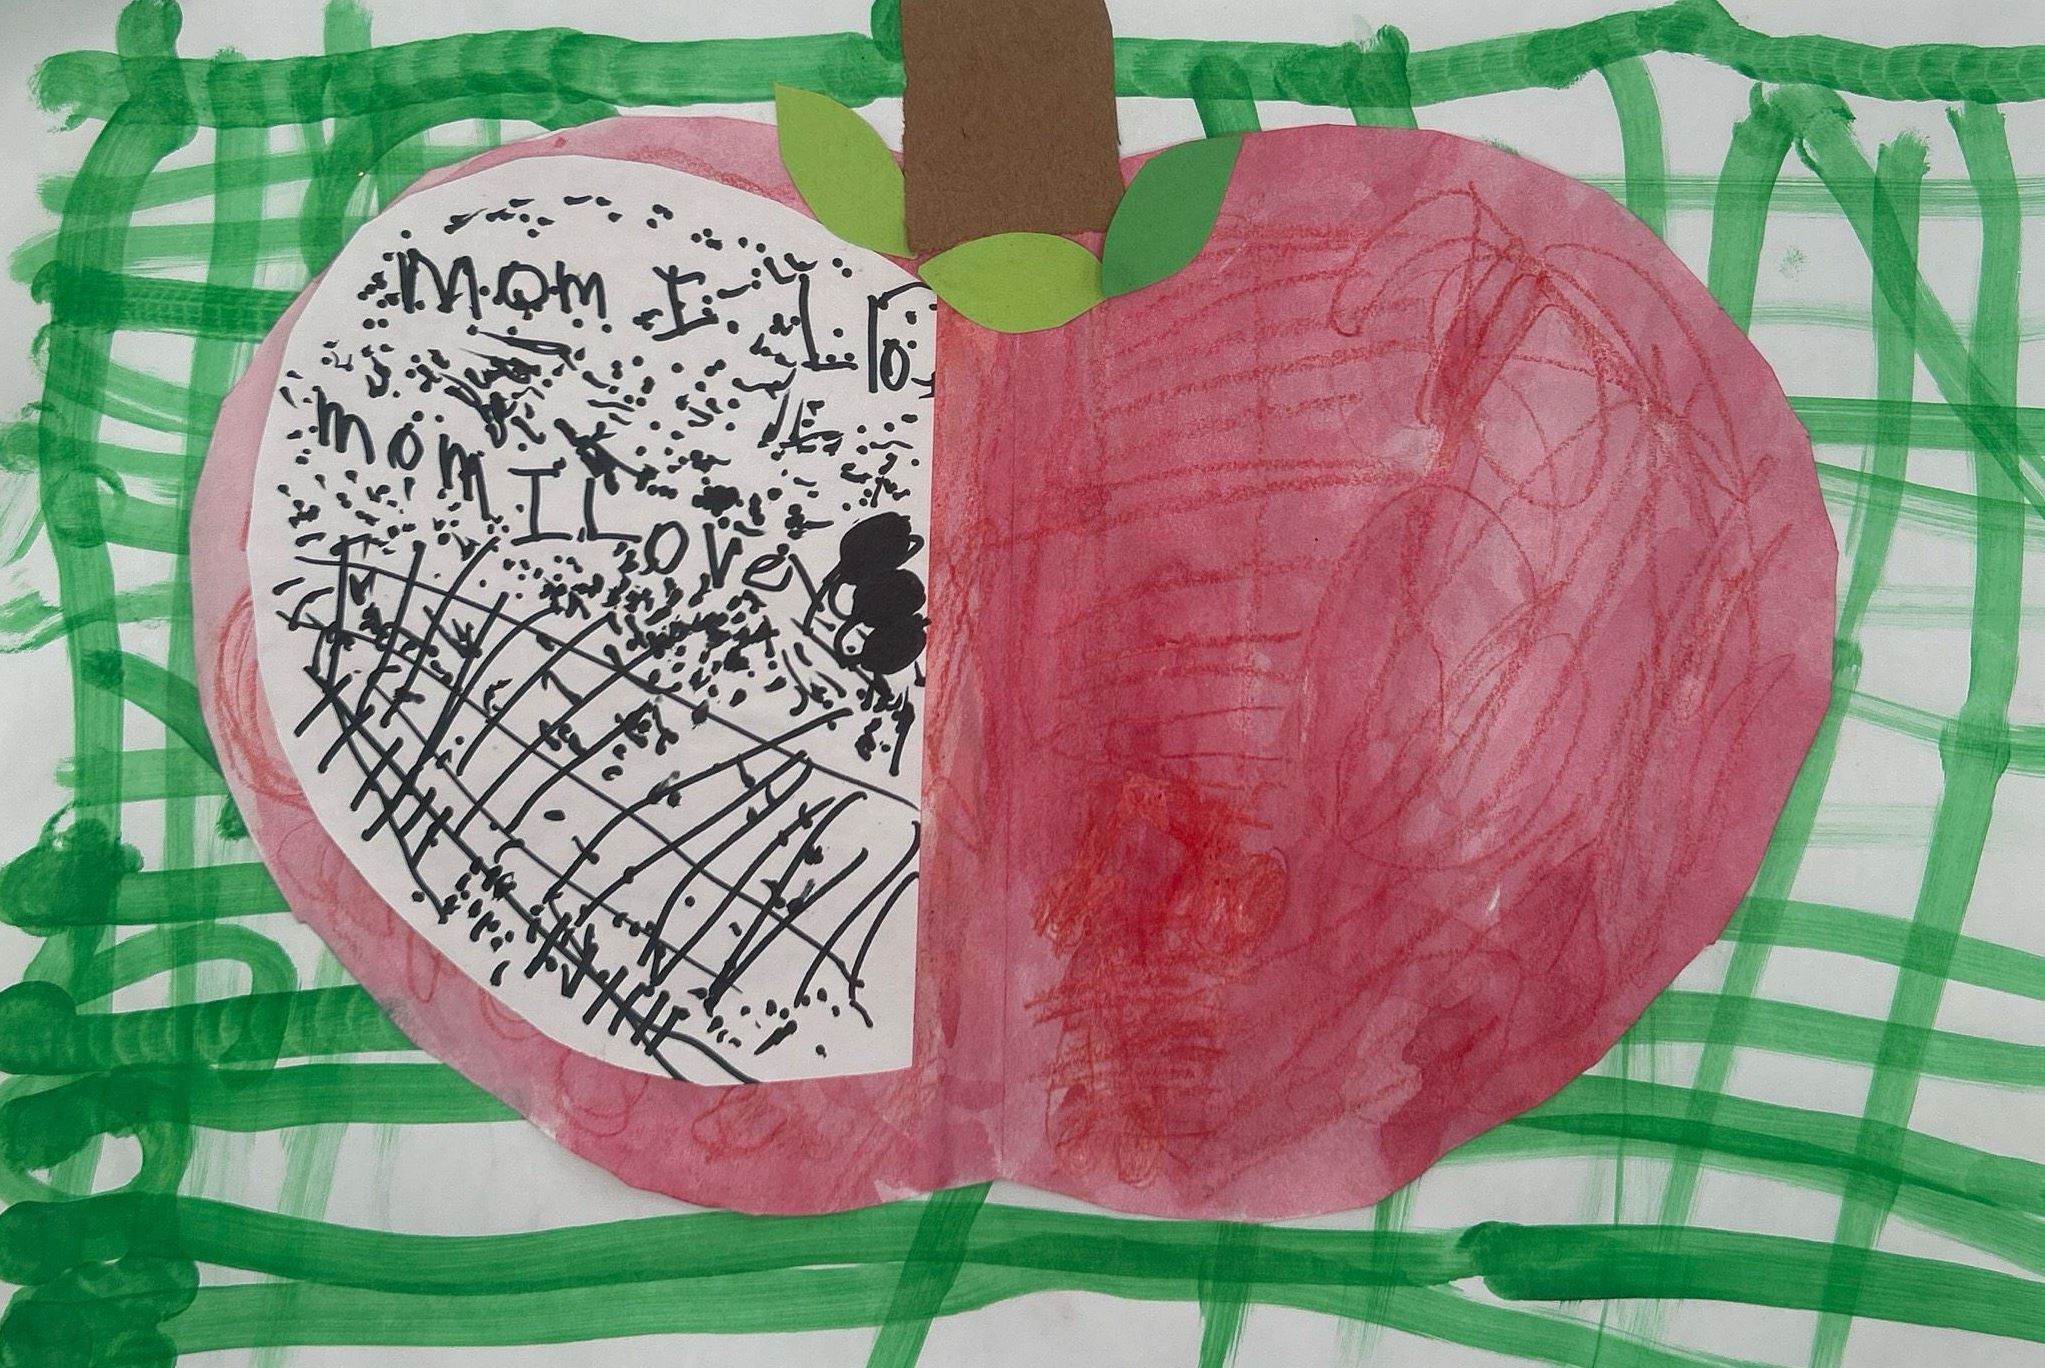 Mom I Lo
Mom I Love